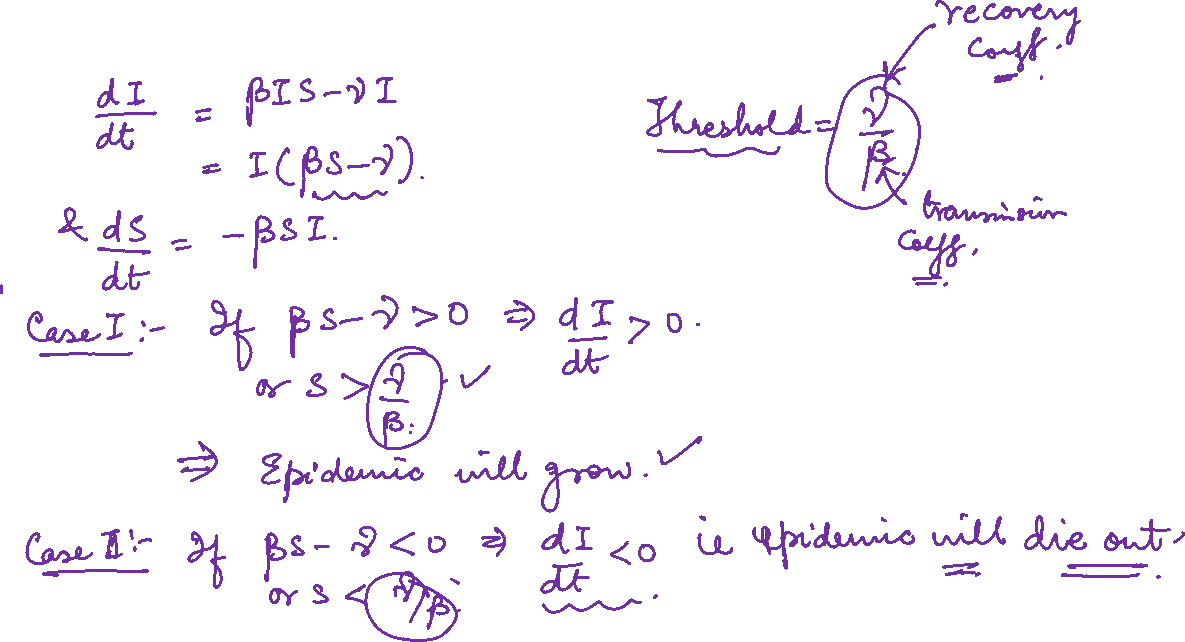 dI/dt = βIS-γI
= I(βS-γ).
& dS/dt = -βSI.
recovery
Coeff.
Threshold = γ/β
transmission
Coeff.
Case I :- If βS-γ>0 ⇒ dI/dt > 0.
or S > γ/β. ✓
⇒ Epidemic will grow. ✓
Case II :- If βS-γ<0 ⇒ dI/dt <0 ie epidemic will die out.
or S < γ/β.